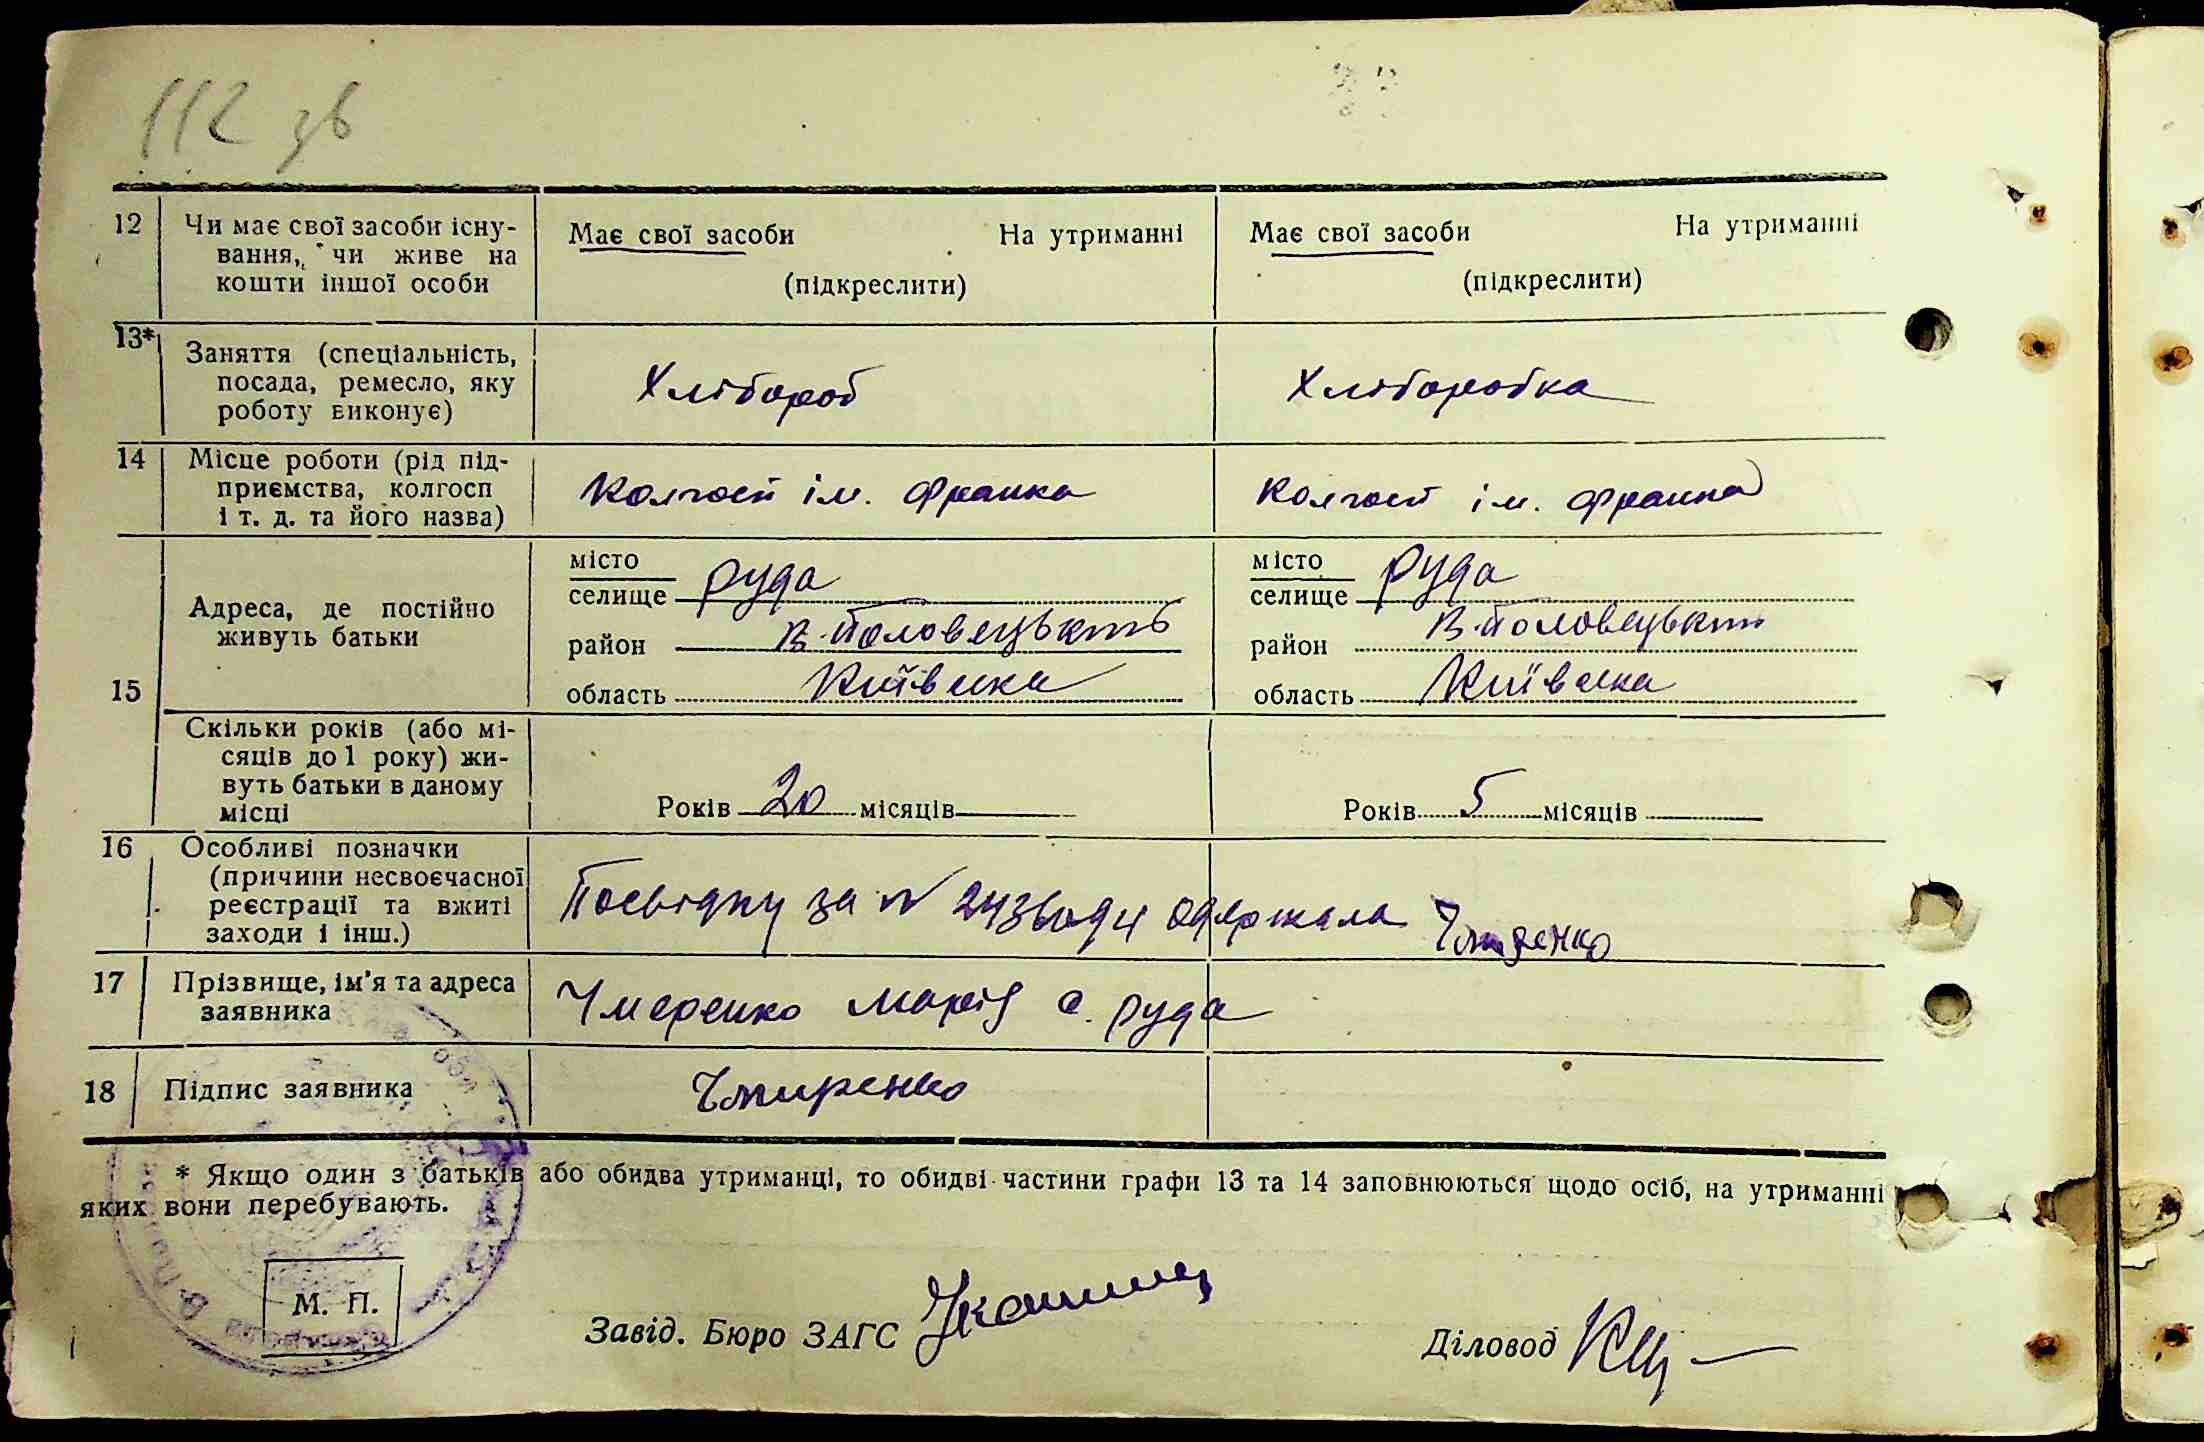 112 зв
12 Чи має свої засоби існу-
вання, чи живе на
кошти іншої особи
Має свої засоби На утриманні
(підкреслити)
Має свої засоби На утриманні
(підкреслити)
13* Заняття (спеціальність,
посада, ремесло, яку
роботу виконує)
Хлібороб
Хлiборобка
14 Місце роботи (рід під-
приємства, колгосп
і т. д. та його назва)
Колгосп ім. Франка
Колгосп ім. Франка
15 Адреса, де постійно
живуть батьки
місто
селище Руда
район В-Половецький
область Київська
місто
селище Руда
район В-Половецький
область Київська
Скільки років (або мі-
сяців до 1 року) жи-
вуть батьки в даному
місці
Років 20 місяців
Років 5 місяців
16 Особливі позначки
(причини несвоєчасної
реєстрації та вжиті
заходи і інш.)
Посвідку за № одержала
17 Прізвище, ім'я та адреса
заявника
Чмеренко Марія с. Руда
18 Підпис заявника
Чмиренко
* Якщо один з батьків або обидва утриманці, то обидві частини графи 13 та 14 заповнюються щодо осіб, на утриманні
яких вони перебувають.
М. П.
Завід. Бюро ЗАГС
Діловод